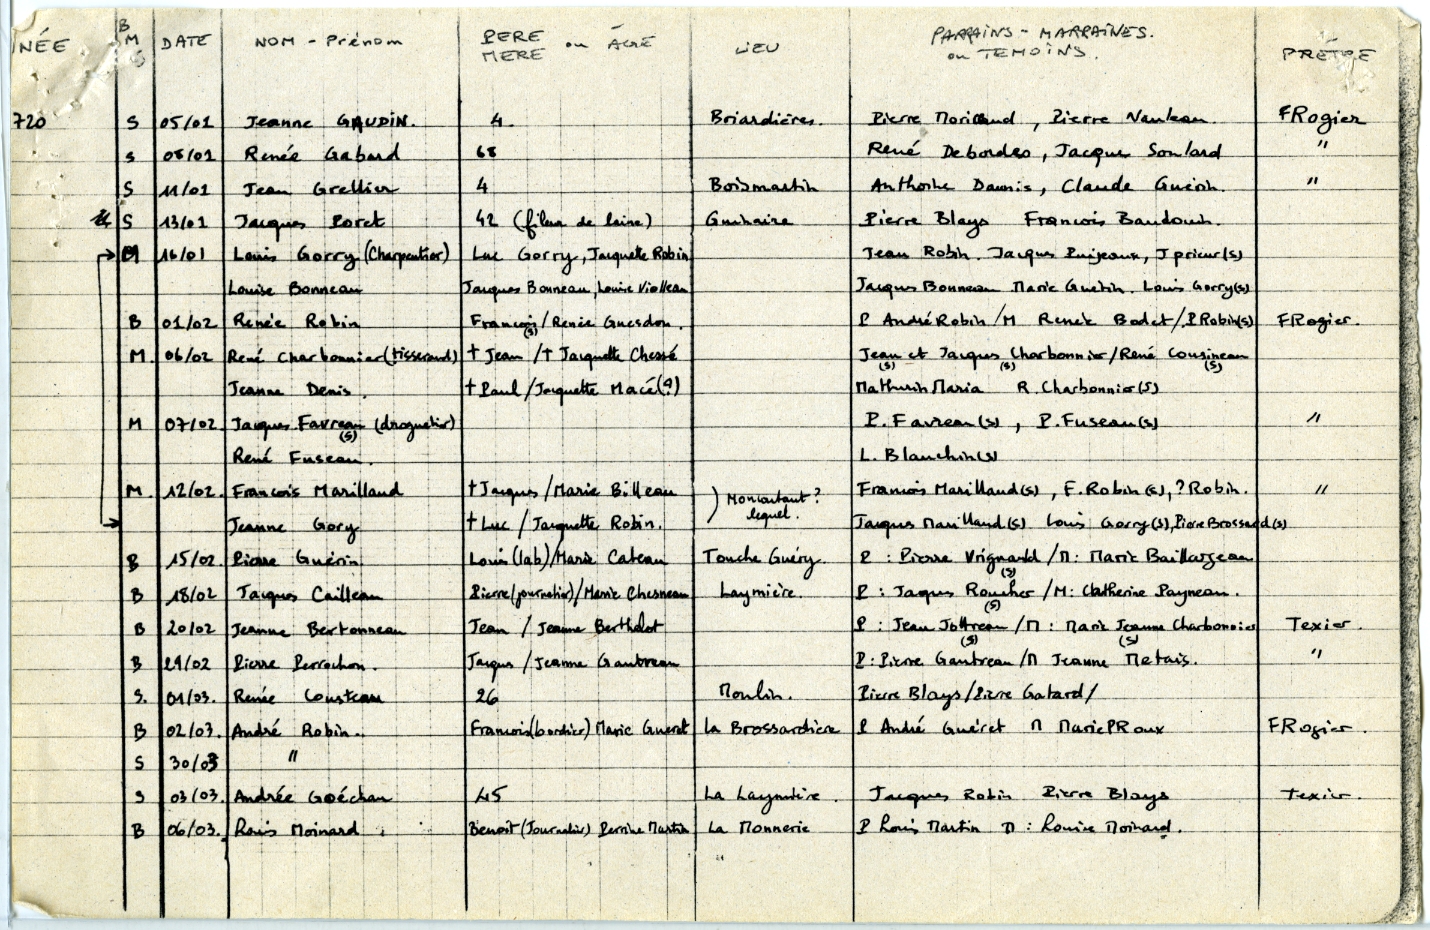 NÉE BMS DATE NOM - Prénom PERE MERE ou ÂGE LIEU PARRAINS - MARRAINES. ou TEMOINS. PRÊTRE
720 S 05/01 Jeanne GAUDIN. 4. Briardières. Pierre Morineaud, Pierre Nauleau. FRogier
S 08/01 Renée Gabard 68 René Debordes, Jacques Soulard "
S 11/01 Jean Grellier 4 Boismartin Anthoine Daunis, Claude Guérin. "
S 13/01 Jacques Poret 42 (fileur de laine) Guinaire Pierre Blays François Baudouin.
M 16/01 Louis Gorry (Charpentier) Luc Gorry, Jacquette Robin Jean Robin. Jacques Puijeoux, J prieur(s)
Louise Bonneau Jacques Bonneau, Louise Violleau Jacques Bonneau Marie Guérin. Louis Gorry(s)
B 01/02 Renée Robin François(s) / Renée Guesdon. P André Robin / M Renée Bodet / P Robin(s) FRogier.
M. 06/02 René Charbonnier (tisserand) † Jean / † Jacquette Chessé Jean(s) et Jacques(s) Charbonnier / René Cousineau(s)
Jeanne Denis. † Paul / Jacquette Macé(?) Mathurin Maria R. Charbonnier(s)
M 07/02 Jacques Favreau(s) (droguetier) P. Favreau(s), P. Fuseau(s) "
René Fuseau. L. Blanchin(s)
M. 12/02. François Marillaud † Jacques / Marie Billeau ) Moncoutant? lequel. François Marillaud(s), F. Robin(s), ? Robin. "
Jeanne Gory † Luc / Jacquette Robin. Jacques Marillaud(s) Louis Gorry(s), Pierre Brossard(s)
B 15/02. Pierre Guérin Louis (lab) / Marie Cateau Touche Guéry. P : Pierre Vrignauld(s) / M : Marie Baillargeau
B 18/02 Jacques Cailleau Pierre (journalier) / Marie Chesneau Laymière. P : Jaques Roucher(s) / M : Catherine Payneau.
B 20/02 Jeanne Bertonneau Jean / Jeanne Berthelot P : Jean Jottreau(s) / M : Marie Jeanne(s) Charbonnier Texier.
B 29/02 Pierre Perrochon. Jacques / Jeanne Gautreau P : Pierre Gautreau / M Jeanne Metais. "
S. 01/03. Renée Cousteau 26 Moulin. Pierre Blays / Pierre Gatard /
B 02/03. André Robin. François (bordier) Marie Gueret La Brossardière P André Guéret M Marie PRoux FRogier.
S 30/03 "
S 03/03. Andrée Goéchau 45 La Laymière. Jacques Robin Pierre Blays Texier.
B 06/03. Louis Moinard Benoît (Journalier) Perrine Martin La Monnerie P Louis Martin M : Louise Moinard.